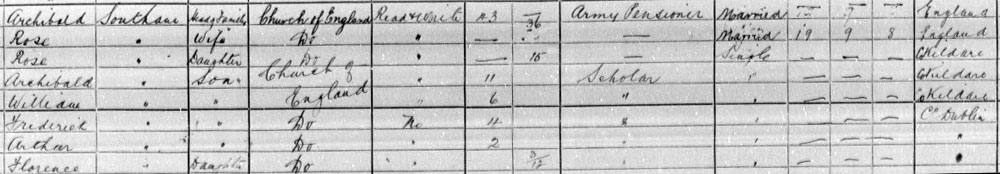 Archibald Southam Head of Family Church of England Read & Write 43 — Army Pensioner Married — — — England
Rose " Wife Do " — 36 — Married 19 9 8 England
Rose " Daughter Do " — 15 — Single — — — Co Kildare
Archibald " Son Church of " 11 Scholar " — — — Co Kildare
William " " England " 6 " " — — — Co Kildare
Frederick " " Do No 4 " " — — — Co Dublin
Arthur " " Do " 2 " " — — — "
Florence " Daughter Do " 3/12 " " — — — "